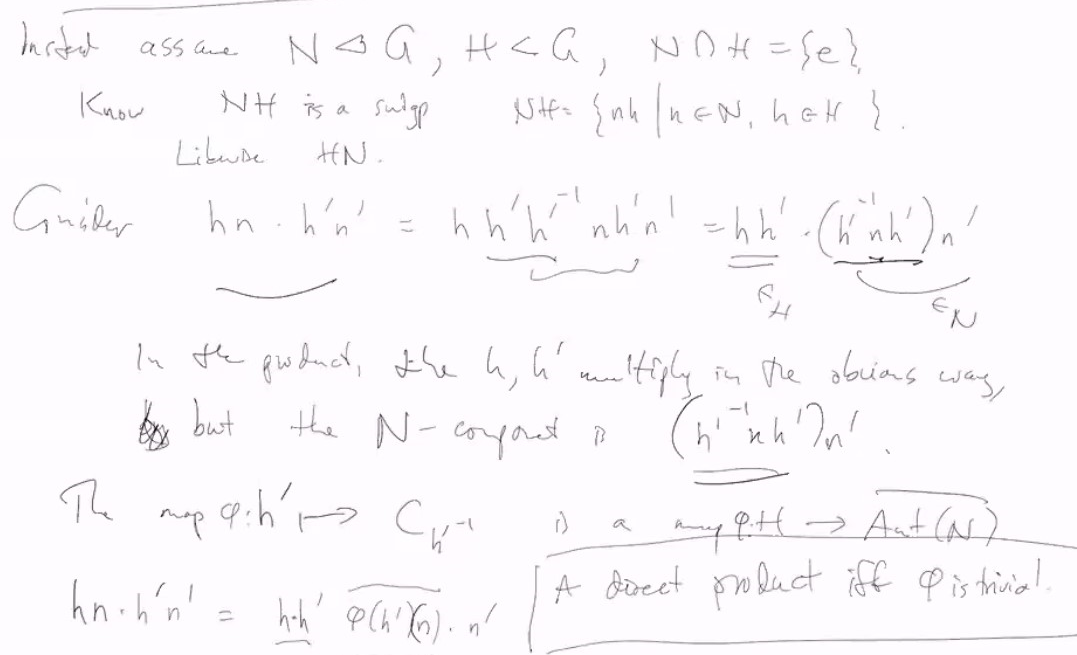 Instead assume N ⊲ G, H < G, N ∩ H = {e}.
Know NH is a subgp NH = {nh | n ∈ N, h ∈ H}.
Likewise HN.
Consider hn · h'n' = h h' h'⁻¹ n h' n' = hh' · (h'⁻¹ n h') n'
∈ H ∈ N
In the product, the h, h' multiply in the obvious way,
but the N-component is (h'⁻¹ n h') n'.
The map φ: h' ↦ C_{h'⁻¹} is a map φ: H → Aut(N)
hn · h'n' = h·h' φ(h')(n) · n'
A direct product iff φ is trivial.